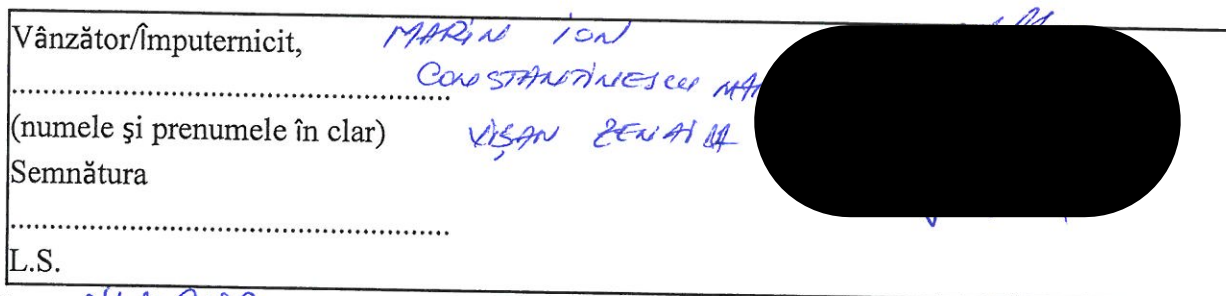 Vânzător/Împuternicit, MARIN ION
CONSTANTINESCU
(numele și prenumele în clar) VIȘAN ZENAIDA
Semnătura
L.S.